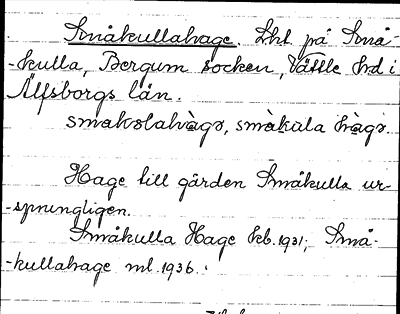 Småkullahage. Lht på Små-
-kulla, Bergum socken, Vättle hd i
Älfsborgs län.
småkɷlahàgɘ, smàkula hàgɘ.
Hage till gården Småkulla ur-
-sprungligen.
Småkulla Hage kb. 1931; Små-
-kullahage ml. 1936.